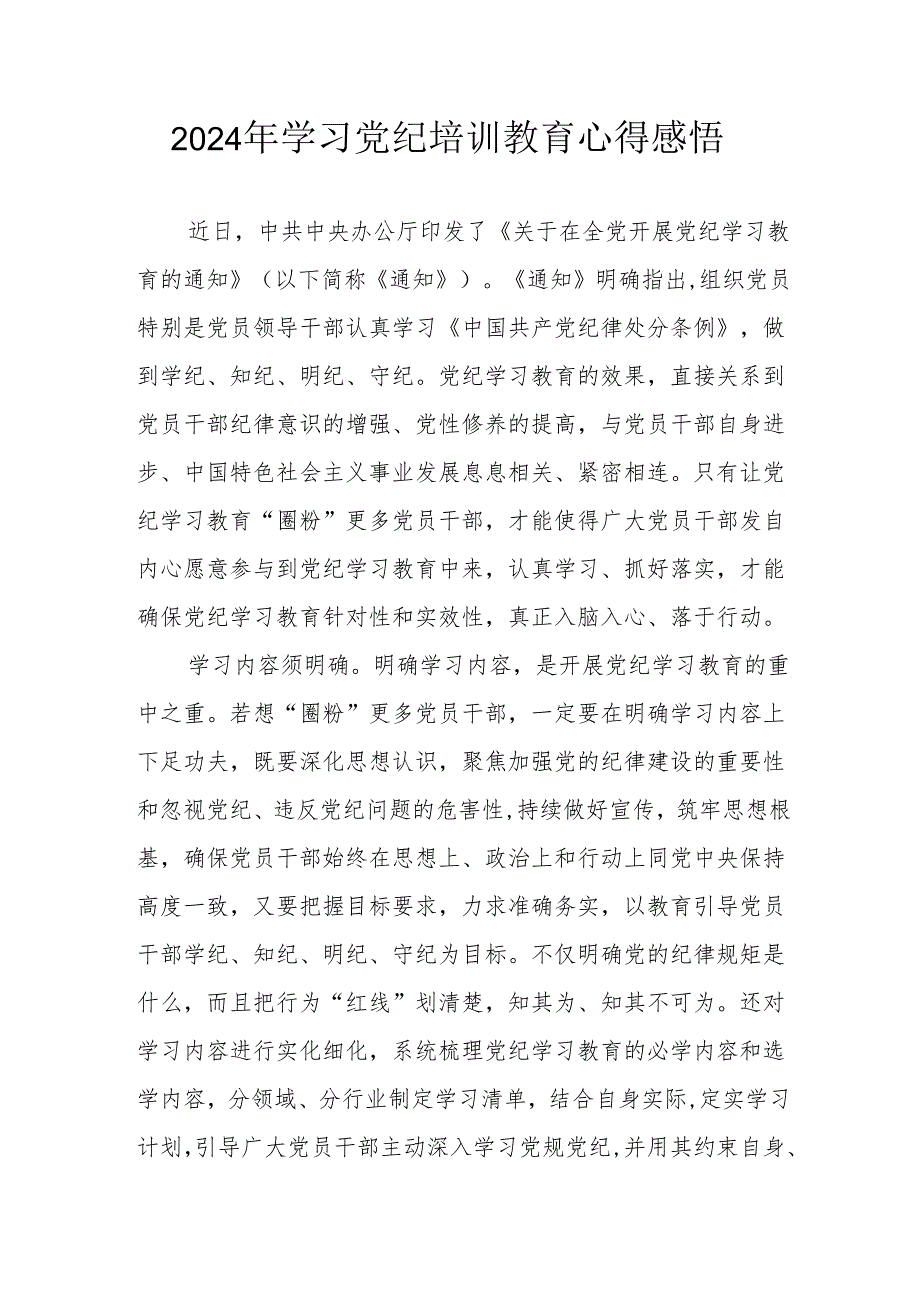 2024年学习党纪培训教育心得感悟
近日，中共中央办公厅印发了《关于在全党开展党纪学习教
育的通知》（以下简称《通知》）。《通知》明确指出,组织党员
特别是党员领导干部认真学习《中国共产党纪律处分条例》，做
到学纪、知纪、明纪、守纪。党纪学习教育的效果，直接关系到
党员干部纪律意识的增强、党性修养的提高，与党员干部自身进
步、中国特色社会主义事业发展息息相关、紧密相连。只有让党
纪学习教育“圈粉”更多党员干部，才能使得广大党员干部发自
内心愿意参与到党纪学习教育中来，认真学习、抓好落实，才能
确保党纪学习教育针对性和实效性，真正入脑入心、落于行动。
学习内容须明确。明确学习内容，是开展党纪学习教育的重
中之重。若想“圈粉”更多党员干部，一定要在明确学习内容上
下足功夫，既要深化思想认识，聚焦加强党的纪律建设的重要性
和忽视党纪、违反党纪问题的危害性,持续做好宣传，筑牢思想根
基，确保党员干部始终在思想上、政治上和行动上同党中央保持
高度一致，又要把握目标要求，力求准确务实，以教育引导党员
干部学纪、知纪、明纪、守纪为目标。不仅明确党的纪律规矩是
什么，而且把行为“红线”划清楚，知其为、知其不可为。还对
学习内容进行实化细化，系统梳理党纪学习教育的必学内容和选
学内容，分领域、分行业制定学习清单，结合自身实际,定实学习
计划,引导广大党员干部主动深入学习党规党纪,并用其约束自身、